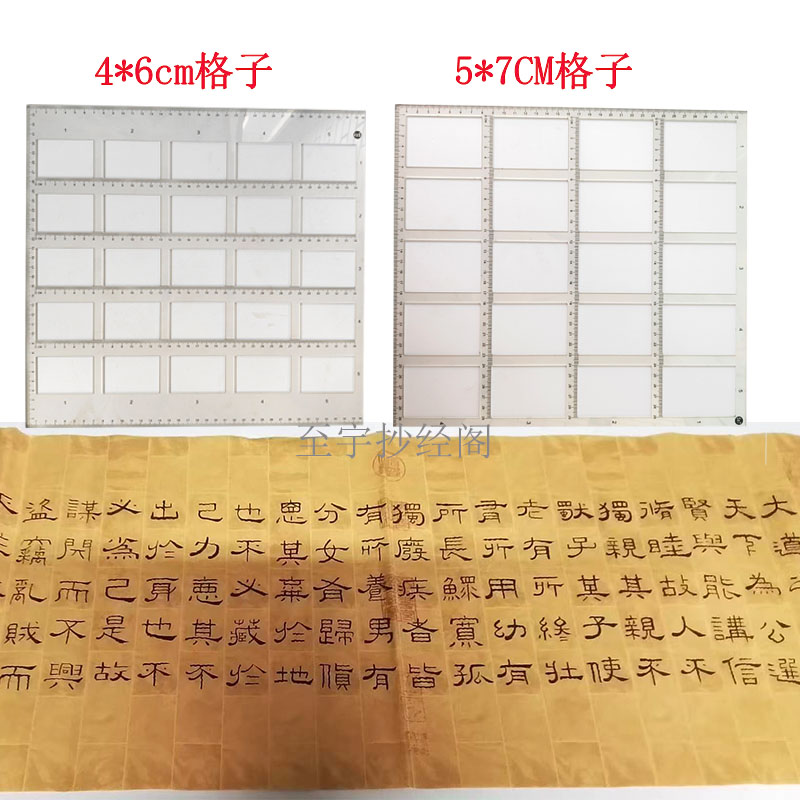 4*6cm格子
5*7CM格子
至宇抄经阁
大道
天下為公選
賢與能講信
脩睦故人不
獨親其親不
獨子其子使
老有所終壯
有所用幼有
所長鰥寡孤
獨廢疾者皆
有所養男有
分女有歸貨
惡其棄於地
也不必藏於
己力惡其不
出於身也不
必為己是故
謀閉而不興
盜竊亂賊而